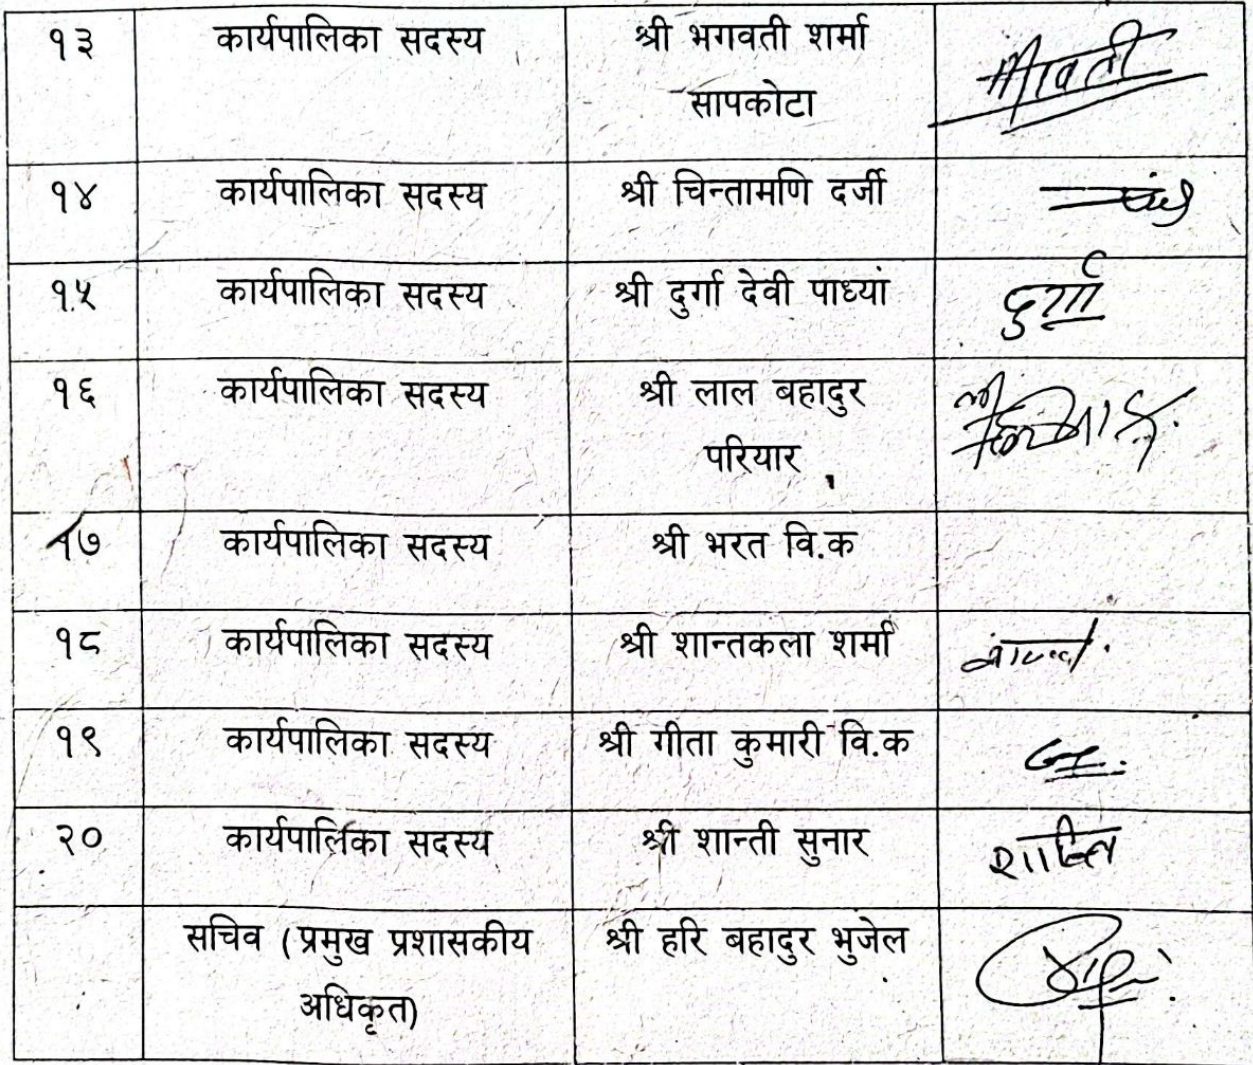 १३ कार्यपालिका सदस्य श्री भगवती शर्मा
सापकोटा
१४ कार्यपालिका सदस्य श्री चिन्तामणि दर्जी
१५ कार्यपालिका सदस्य श्री दुर्गा देवी पाध्यां दुर्गा
१६ कार्यपालिका सदस्य श्री लाल बहादुर
परियार
१७ कार्यपालिका सदस्य श्री भरत वि.क
१८ कार्यपालिका सदस्य श्री शान्तकला शर्मा
१९ कार्यपालिका सदस्य श्री गीता कुमारी वि.क
२० कार्यपालिका सदस्य श्री शान्ती सुनार
सचिव (प्रमुख प्रशासकीय श्री हरि बहादुर भुजेल
अधिकृत)